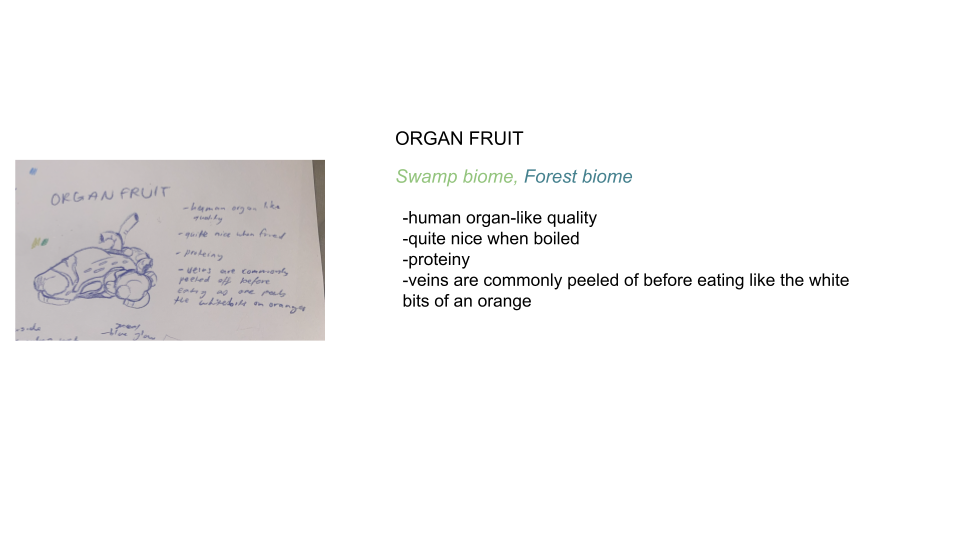 ORGAN FRUIT
-human organ like
quality
-quite nice when
- proteiny
-veins are commonly
peeled off before
eating as one peels
the white bits on oranges
-side
ORGAN FRUIT
Swamp biome, Forest biome
-human organ-like quality
-quite nice when boiled
-proteiny
-veins are commonly peeled of before eating like the white
bits of an orange